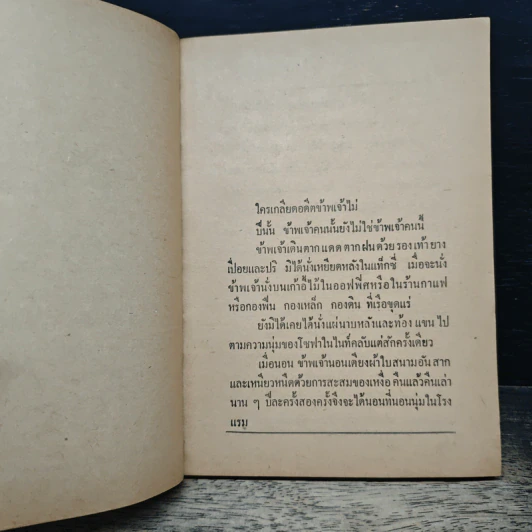 ใครเกลียดอดีตข้าพเจ้าไม่
ปีนั้น ข้าพเจ้าคนนั้นยังไม่ใช่ข้าพเจ้าคนนี้
ข้าพเจ้าเดินตากแดดตากฝนด้วยรองเท้ายาง
เปื่อยและปริ มิได้นั่งเหยียดหลังในแท็กซี่ เมื่อจะนั่ง
ข้าพเจ้านั่งบนเก้าอี้ไม้ในออฟฟิศหรือในร้านกาแฟ
หรือกองฟืน กองเหล็ก กองดิน ที่เรือขุดแร่
ยังมิได้เคยได้นั่งแผ่นาบหลังและท้องแขนไป
ตามความนุ่มของโซฟาในไนท์คลับแต่สักครั้งเดียว
เมื่อนอน ข้าพเจ้านอนเตียงผ้าใบสนามอันสาก
และเหนียวหนืดด้วยการสะสมของเหงื่อคืนแล้วคืนเล่า
นาน ๆ ปีละครั้งสองครั้งจึงจะได้นอนที่นอนนุ่มในโรง
แรม